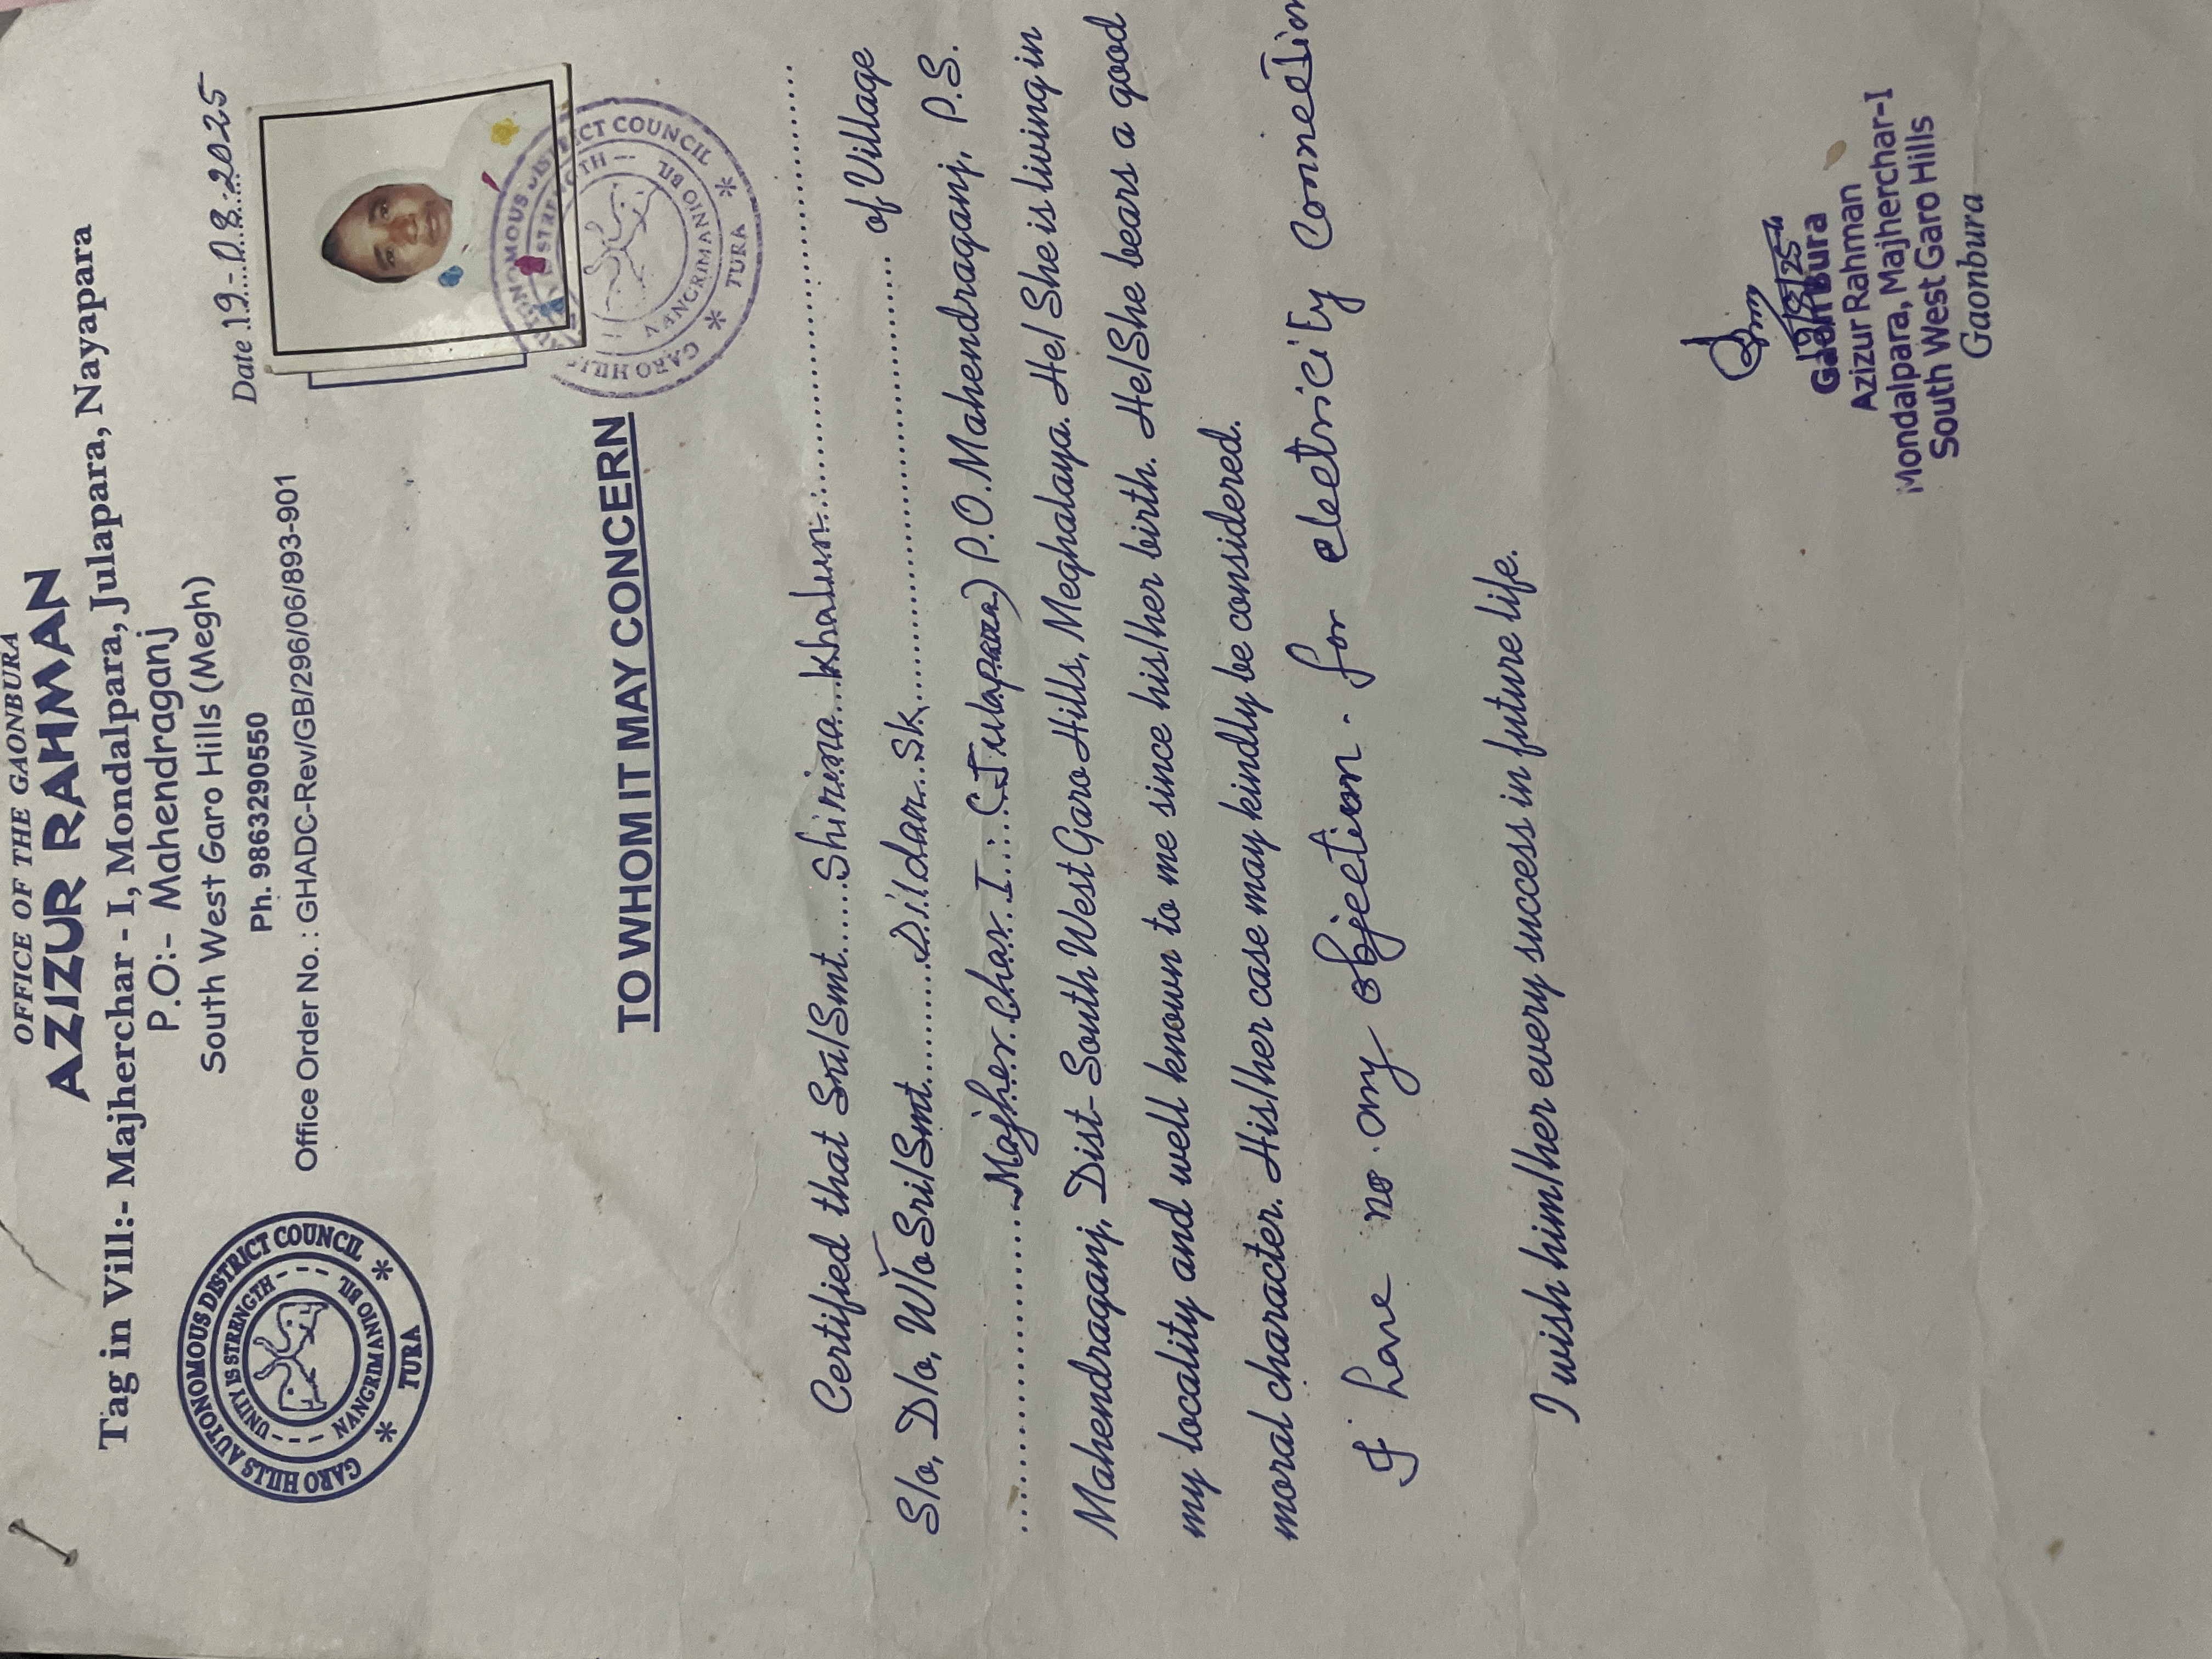 OFFICE OF THE GAONBURA
AZIZUR RAHMAN
Tag in Vill:- Majherchar - I, Mondalpara, Julapara, Nayapara
P.O:- Mahendraganj
South West Garo Hills (Megh)
Ph. 9863290550
Office Order No. : GHADC-Rev/GB/296/06/893-901
GARO HILLS AUTONOMOUS DISTRICT COUNCIL
UNITY IS STRENGTH
NANGRIMANIO BIL
TURA
Date 19-08-2025
GARO HILLS AUTONOMOUS DISTRICT COUNCIL
NANGRIMANIO BIL
TURA
TO WHOM IT MAY CONCERN
Certified that Sri/Smt. Shirina Khatun
S/o, D/o, W/o Sri/Smt Dildar Sk of Village
Majher Char I (Julapara) P.O. Mahendraganj, P.S.
Mahendraganj, Dist- South West Garo Hills, Meghalaya. He/ She is living in
my locality and well known to me since his/her birth. He/She bears a good
moral character. His/her case may kindly be considered.
I have no any objection. for electricity Connection
I wish him/her every success in future life.
19/8/25
Gaon Bura
Azizur Rahman
Mondalpara, Majherchar-I
South West Garo Hills
Gaonbura